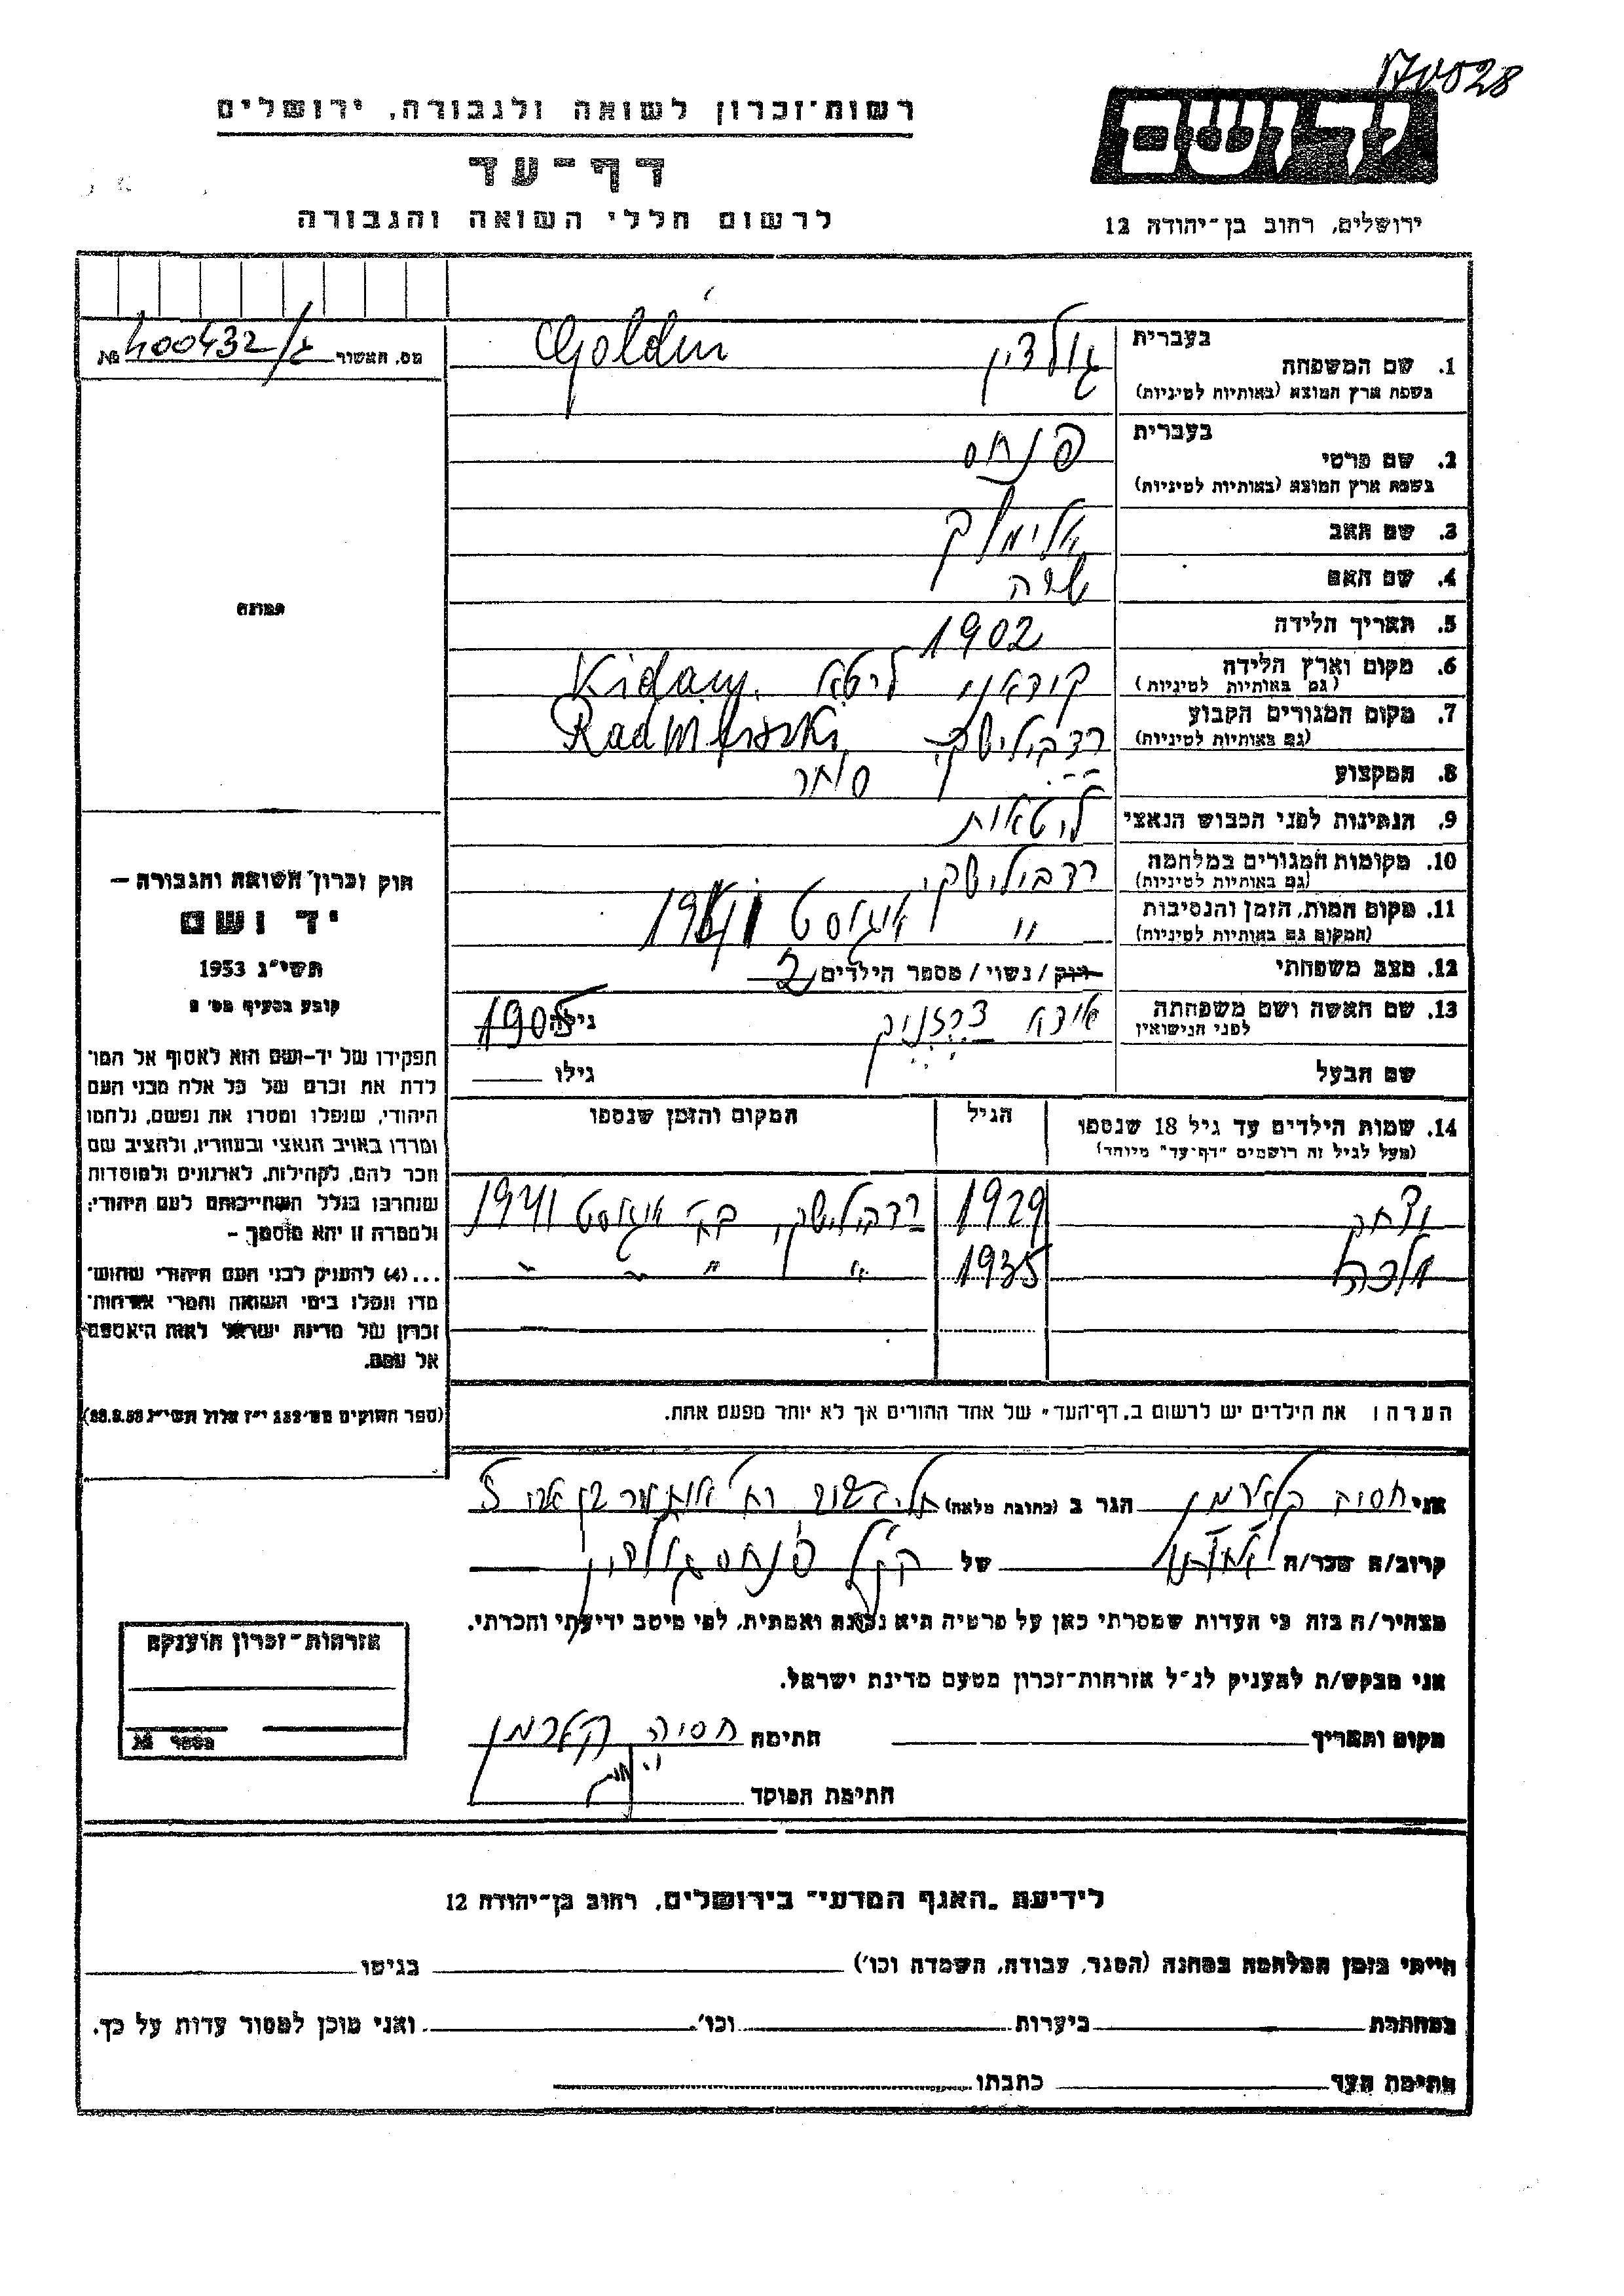 170028
יד ושם
רשות־זכרון לשואה ולגבורה, ירושלים
דף־עד
לרשום חללי השואה והגבורה
ירושלים, רחוב בן־יהודה 12
מס. האשור ג/400432 №
תמונה
חוק זכרון השואה והגבורה —
יד ושם
תשי״ג 1953
קובע בסעיף מס׳ 2
תפקידו של יד־ושם הוא לאסוף אל המו־
לדת את זכרם של כל אלה מבני העם
היהודי, שנפלו ומסרו את נפשם, נלחמו
ומרדו באויב הנאצי ובעוזריו, ולהציב שם
וזכר להם, לקהילות, לארגונים ולמוסדות
שנחרבו בגלל השתייכותם לעם היהודי;
ולמטרה זו יהא מוסמך —
...(4) להעניק לבני העם היהודי שהוש־
מדו ונפלו בימי השואה והמרי אזרחות־
זכרון של מדינת ישראל לאות היאספם
אל עמם.
(ספר החוקים מס׳ 132 י״ז אלול תשי״ג 28.8.53)
בעברית
1. שם המשפחה גולדין Goldin
בשפת ארץ המוצא (באותיות לטיניות)
בעברית
2. שם פרטי פנחס
בשפת ארץ המוצא (באותיות לטיניות)
3. שם האב אלימלך
4. שם האם שרה
5. תאריך הלידה 1902
6. מקום וארץ הלידה קידאני ליטא Kidany.
(גם באותיות לטיניות)
7. מקום המגורים הקבוע רדבילישקי
(גם באותיות לטיניות)
8. המקצוע סוחר
9. הנתינות לפני הכבוש הנאצי ליטאית
10. מקומות המגורים במלחמה רדבילישקי
(גם באותיות לטיניות)
11. מקום המות, הזמן והנסיבות " אוגוסט 1941
(המקום גם באותיות לטיניות)
12. מצב משפחתי רווק / נשוי / מספר הילדים 2
13. שם האשה ושם משפחתה אידא גילה 1905
לפני הנישואין
שם הבעל גילו
14. שמות הילדים עד גיל 18 שנספו הגיל המקום והזמן שנספו
(מעל לגיל זה רושמים ״דף־עד״ מיוחד)
יצחק 1929 רדבילישקי, אוגוסט 1941
מלכה 1935 " " " "
הערה: את הילדים יש לרשום ב״דף־העד״ של אחד ההורים אך לא יותר מפעם אחת.
אני חסיה הגר ב (כתובת מלאה)
קרוב/ה מכר/ה של פנחס גולדין
מצהיר/ה בזה כי העדות שמסרתי כאן על פרטיה היא נכונה ואמתית, לפי מיטב ידיעתי והכרתי.
אני מבקש/ת להעניק לנ״ל אזרחות־זכרון מטעם מדינת ישראל.
מקום ותאריך חתימה חסיה
חתימת הפוקד
אזרחות־זכרון הוענקה
מספר №
לידיעת ״האגף המדעי״ בירושלים, רחוב בן־יהודה 12
הייתי בזמן המלחמה במחנה (הסגר, עבודה, השמדה וכו׳) בגיטו
במחתרת ביערות וכו׳ ואני מוכן למסור עדות על כך.
חתימת העד כתבתו